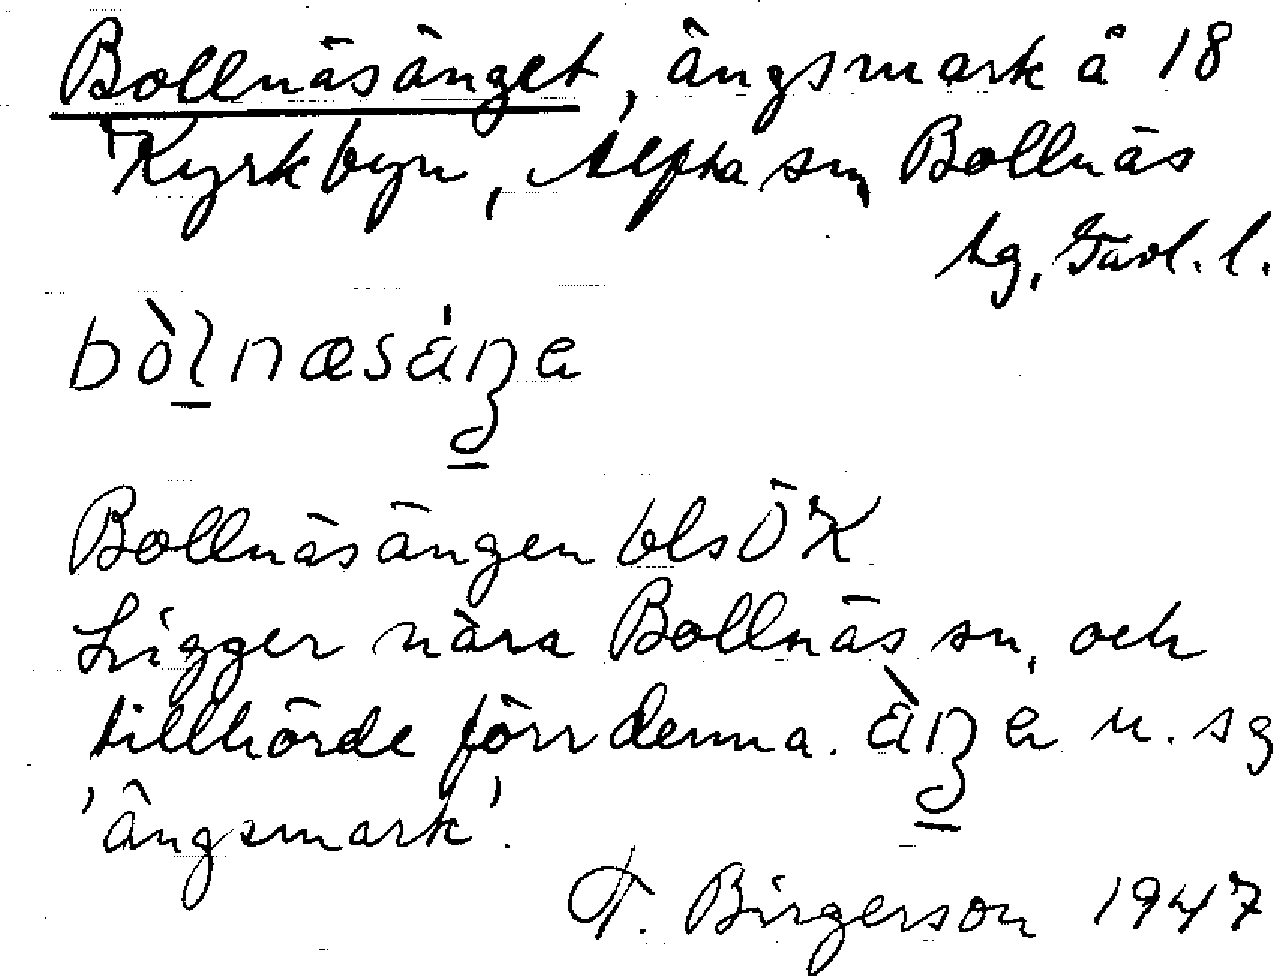 Bollnäsänget, ängsmark å 18
Kyrkbyn, Alfta sn, Bollnäs
tg, Gävl. l.
bòlnæsáŋe
Bollnäsängen bls ÖK
Ligger nära Bollnäs sn, och
tillhörde förr denna. àŋe n. sg
'ängsmark'.
T. Birgerson 1947